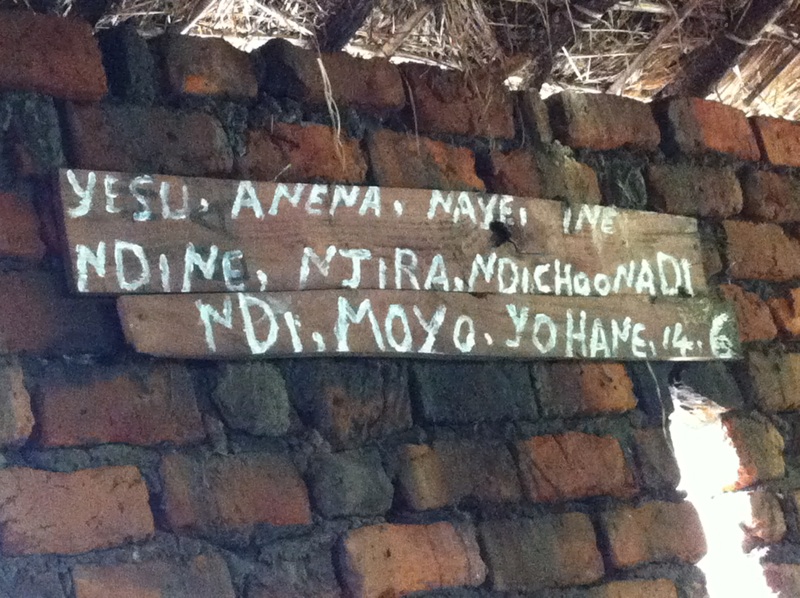 YESU. ANENA. NAYE. INE
NDINE, NJIRA.NDICHOONADI
NDI. MOYO. YOHANE. 14. 6